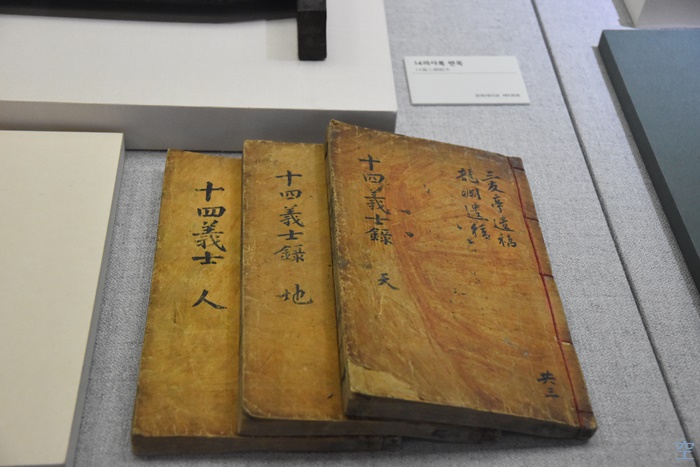 14의사록
十四義士 人
十四義士錄 地
十四義士錄 天
三友亭遺稿
龍澗遺稿
共三